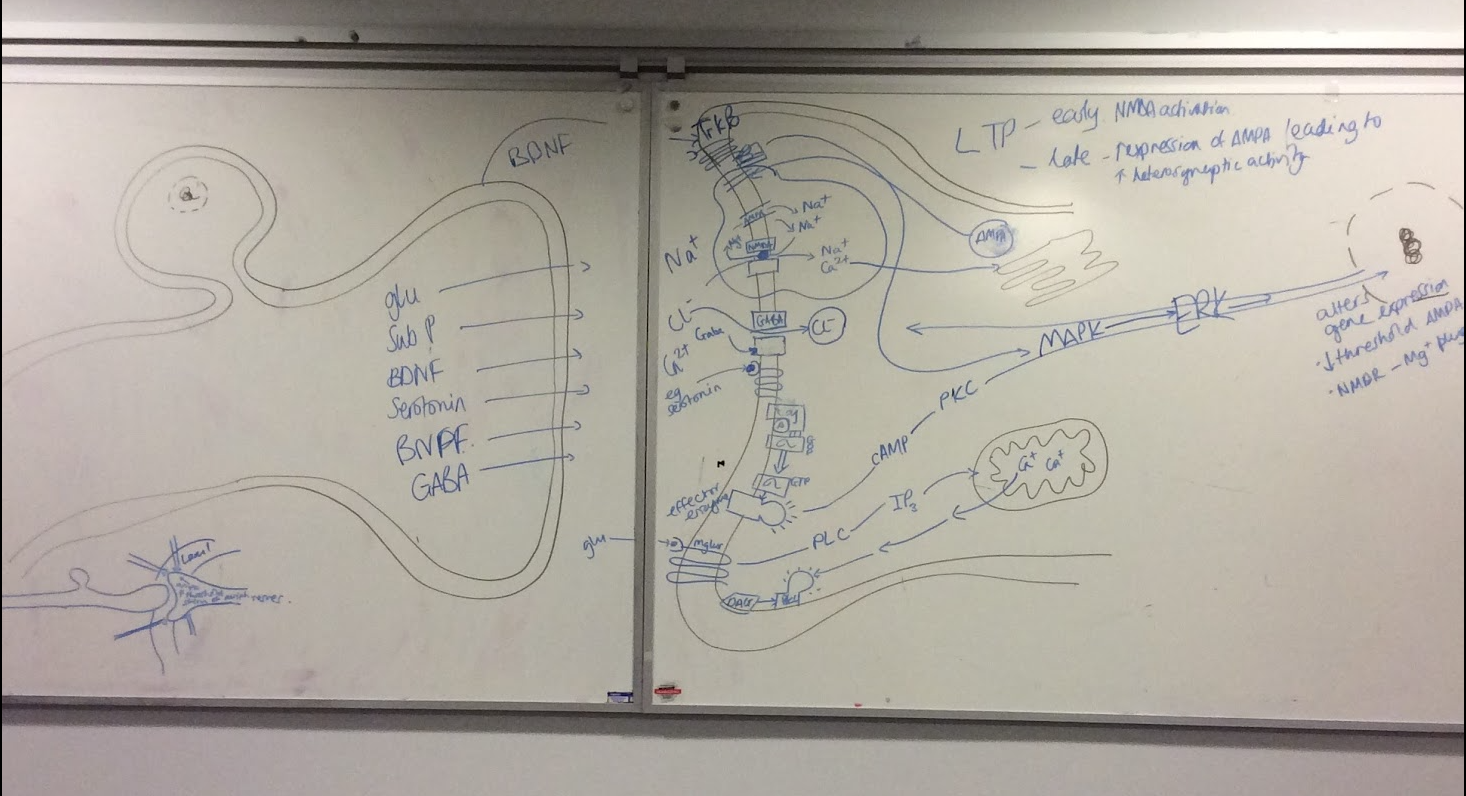 BDNF
glu
Sub P
BDNF
Serotonin
BNPF
GABA
TrkB
LTP - early NMDA activation
- late - expression of AMPA leading to
↑ heterosynaptic activity
AMPA
Na+
AMPA
Na+
Na+
Mg
NMDA
Na+
Ca2+
Cl-
GABA
Cl-
Gaba
Ca2+
eg
serotonin
GTP
effector
enzyme
glu
mglur
PLC
IP3
cAMP
PKC
MAPK
ERK
Ca+ Ca+
DAG
PKC
alters
gene expression
· ↓threshold AMPA
· NMDR - Mg+ plug